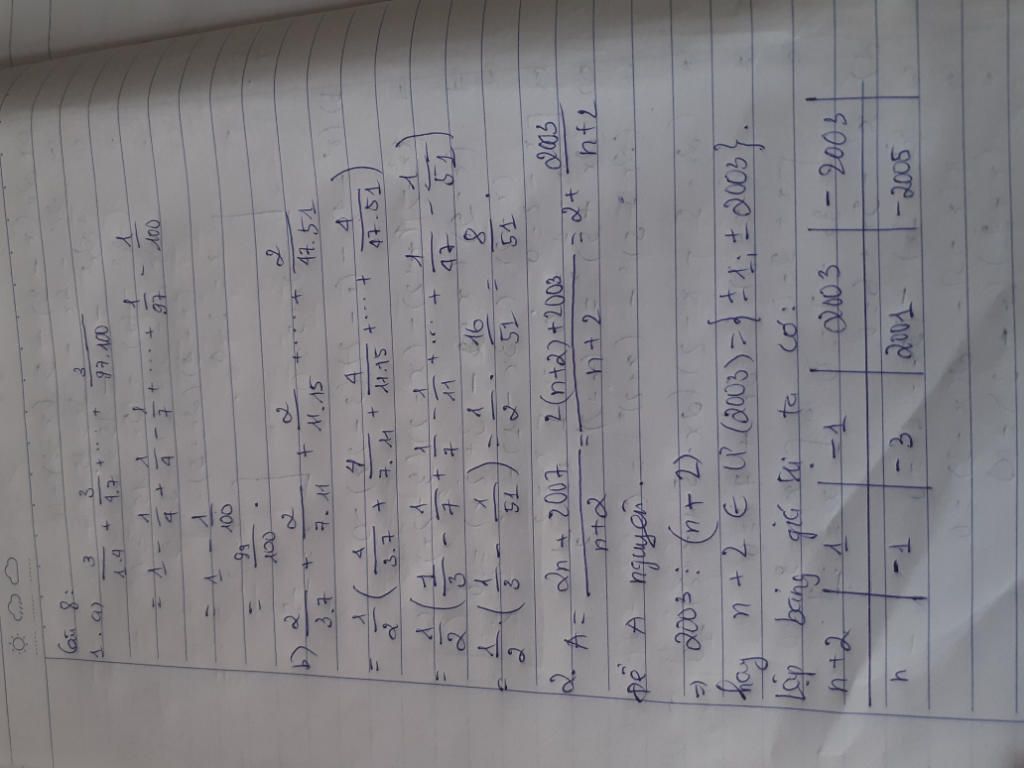 Câu 8:
1. a) 3/1.4 + 3/4.7 + .... + 3/97.100
= 1 - 1/4 + 1/4 - 1/7 + .... + 1/97 - 1/100
= 1 - 1/100
= 99/100 .
b) 2/3.7 + 2/7.11 + 2/11.15 + .... + 2/47.51
= 1/2 (4/3.7 + 4/7.11 + 4/11.15 + .... + 4/47.51)
= 1/2 (1/3 - 1/7 + 1/7 - 1/11 + .... + 1/47 - 1/51)
= 1/2 . (1/3 - 1/51) = 1/2 . 16/51 = 8/51 .
2 A = 2n + 2007/n+2 = 2(n+2) + 2003/n+2 = 2 + 2003/n+2
Để A nguyên .
=> 2003 ⋮ (n + 2)
hay n + 2 ∈ Ư(2003) = { ± 1 ; ± 2003 } .
Lập bảng giá trị ta có :
n+2 | 1 | -1 | 2003 | -2003
n | -1 | -3 | 2001 | -2005